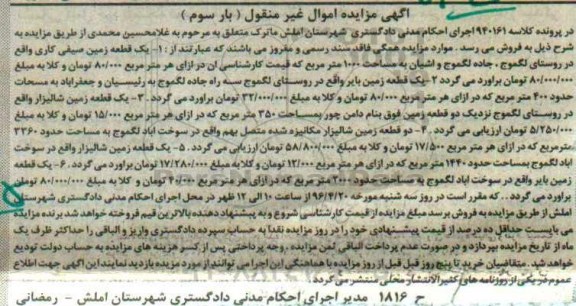 آگهی مزایده اموال غیر منقول ( بار سوم )
در پرونده کلاسه ۹۴۰۱۶۱ اجرای احکام مدنی دادگستری شهرستان املش ماترک متعلق به مرحوم به غلامحسین محمدی از طریق مزایده به
شرح ذیل به فروش می رسد . موارد مزایده همگی فاقد سند رسمی و مفروز می باشند که عبارتند از : ۱- یک قطعه زمین صیفی کاری واقع
در روستای لگموج ، جاده لگموج و اشیان به مساحت ۱۰۰۰ متر مربع که قیمت کارشناسی ان در ازای هر متر مربع ۸۰/۰۰۰ تومان و کلا به مبلغ
۸۰/۰۰۰/۰۰۰ تومان براورد می گردد ۲- یک قطعه زمین بایر واقع در روستای لگموج سه راه جاده لگموج به رئیسیان و جعفراباد به مساحات
حدود ۴۰۰ متر مربع که در ازای هر متر مربع ۸۰/۰۰۰ تومان و کلا به مبلغ ۳۲/۰۰۰/۰۰۰ تومان براورد می گردد . ۳- یک قطعه زمین شالیزار واقع
در روستای لگموج نزدیک دو قطعه زمین فوق بنام دامن جور بمساحت ۳۵۰ متر مربع که در ازای هر متر مربع ۱۵/۰۰۰ تومان و کلا به مبلغ
۵/۲۵۰/۰۰۰ تومان ارزیابی می گردد . ۴- دو قطعه زمین شالیزار مکانیزه شده متصل بهم واقع در سوخت اباد لگموج به مساحت حدود ۳۳۶۰
مترمربع که در ازای هر متر مربع ۱۷/۵۰۰ تومان و کلا به مبلغ ۵۸/۸۰۰/۰۰۰ تومان ارزیابی می گردد. ۵- یک قطعه زمین شالیزار واقع در سوخت
اباد لگموج بمساحت حدود ۱۴۴۰ متر مربع که در ازای هر متر مربع ۱۲/۰۰۰ تومان و کلا به مبلغ ۱۷/۲۸۰/۰۰۰ تومان براورد می گردد . ۶- یک قطعه
زمین بایر واقع در سوخت اباد لگموج به مساحت حدود ۲۰۰۰ متر مربع که در ازای هر متر مربع ۴۰/۰۰۰ تومان و کلا به مبلغ ۸۰/۰۰۰/۰۰۰ تومان
براورد می گردد . ، که مقرر است در روز سه شنبه مورخه ۹۶/۴/۲۰ از ساعت ۱۰ الی ۱۲ ظهر در محل اجرای احکام مدنی دادگستری شهرستان
املش از طریق مزایده به فروش برسد مبلغ مزایده از قیمت کارشناسی شروع و به پیشنهاد دهنده بالاترین قیم فروخته خواهد شد برنده مزایده
می بایست حداقل ده درصد از قیمت پیشنهادی خود را در روز مزایده نقداً به حساب سپرده دادگستری واریز و الباقی را حداکثر ظرف یک
ماه از تاریخ مزایده بپردازد و در صورت عدم پرداخت الباقی ثمن مزایده ، وجه پرداختی پس از کسر هزینه های مزایده به حساب دولت تودیع
خواهد شد . متقاضیان خرید تا پنج روز قبل از روز مزایده با هماهنگی این اجرامی توانند از مورد مزایده بازدید نمایند این آگهی جهت اطلاع
عموم در یکی از روزنامه های کثیر الانتشار محلی منتشر می گردد
ح ۱۸۱۶ مدیر اجرای احکام مدنی دادگستری شهرستان املش - رمضانی